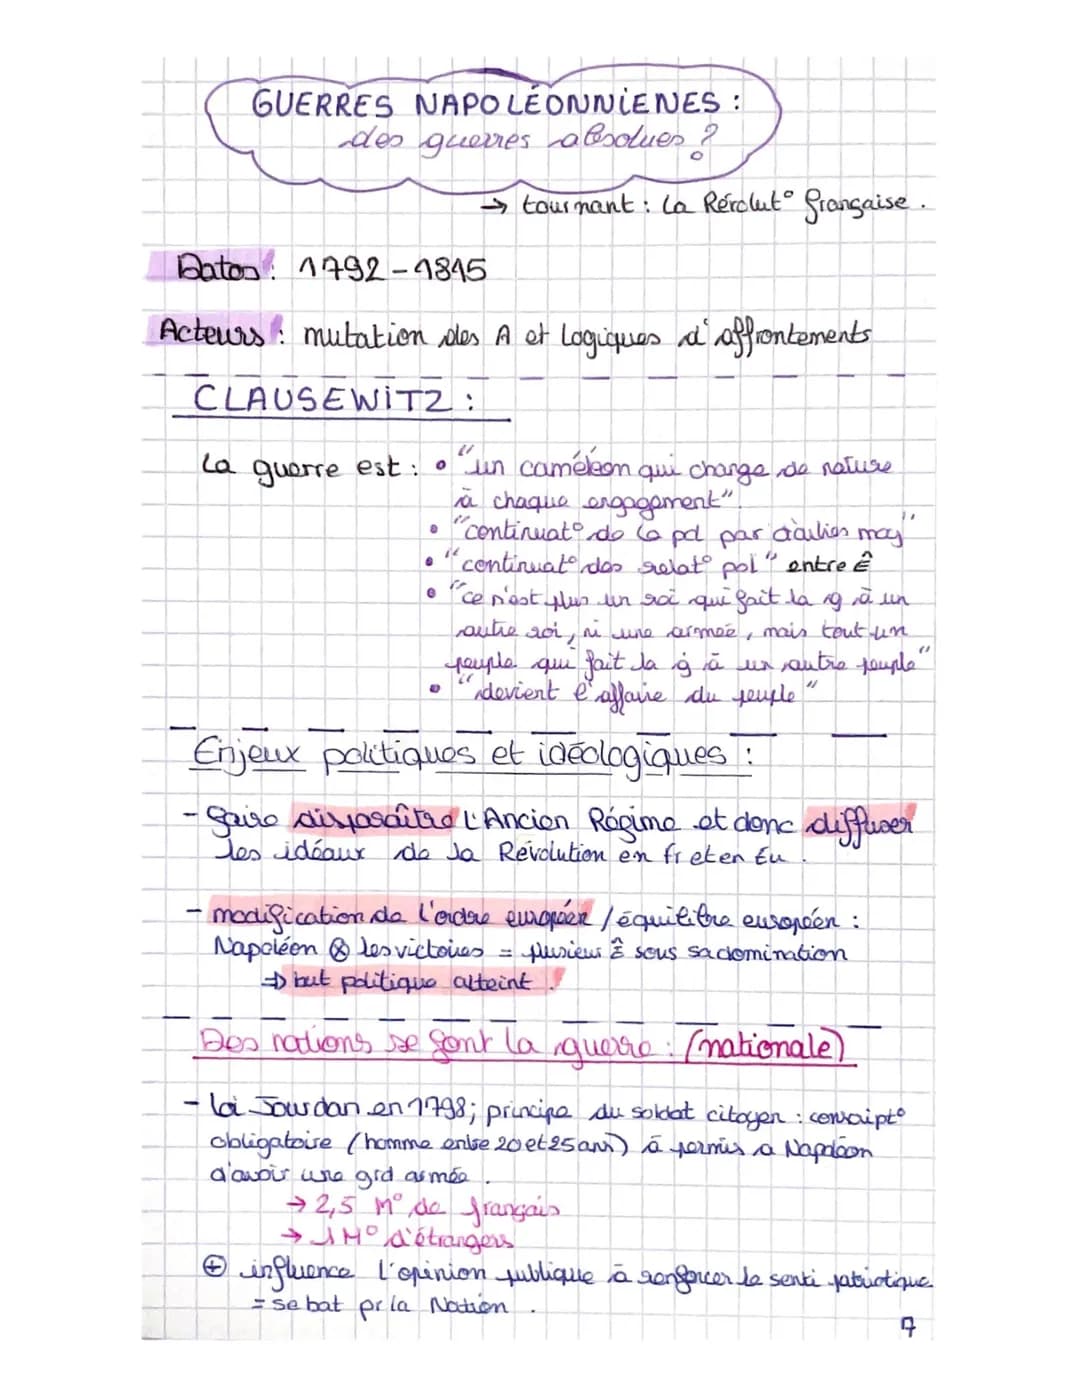 GUERRES NAPOLÉONNIENES :
des guerres absolues ?
→ tournant : la Révolut° française.
Dates : 1792 - 1815
Acteurs : mutation des A et logiques d'affrontements
CLAUSEWITZ :
La guerre est : • "un caméléon qui change de nature
à chaque engagement".
• "continuat° de la pol par d'autres moy"
• "continuat° des relat° pol" entre Ê
• "ce n'est plus un roi qui fait la g à un
autre roi, ni une armée, mais tout un
peuple qui fait la g à un autre peuple"
• "devient l'affaire du peuple"
Enjeux politiques et idéologiques :
- faire disparaître l'Ancien Régime et donc diffuser
les idéaux de la Révolution en fr et en Eu.
- modification de l'ordre européen / équilibre européen :
Napoléon ⊗ les victoires = plusieurs Ê sous sa domination
⇒ but politique atteint !
Des nations se font la guerre : (nationale)
- loi Jourdan en 1798; principe du soldat citoyen : conscript°
obligatoire (homme entre 20 et 25 ans) à permis a Napoléon
d'avoir une grd armée.
→ 2,5 M° de français
→ 1 M° d'étrangers
⊕ influence l'opinion publique à renforcer le senti patriotique
= se bat pr la Nation.
7